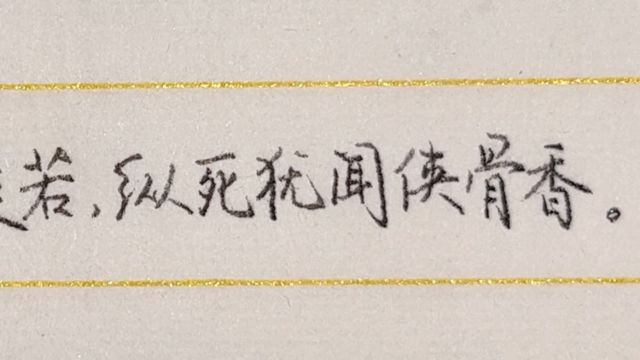 若,纵死犹闻侠骨香。